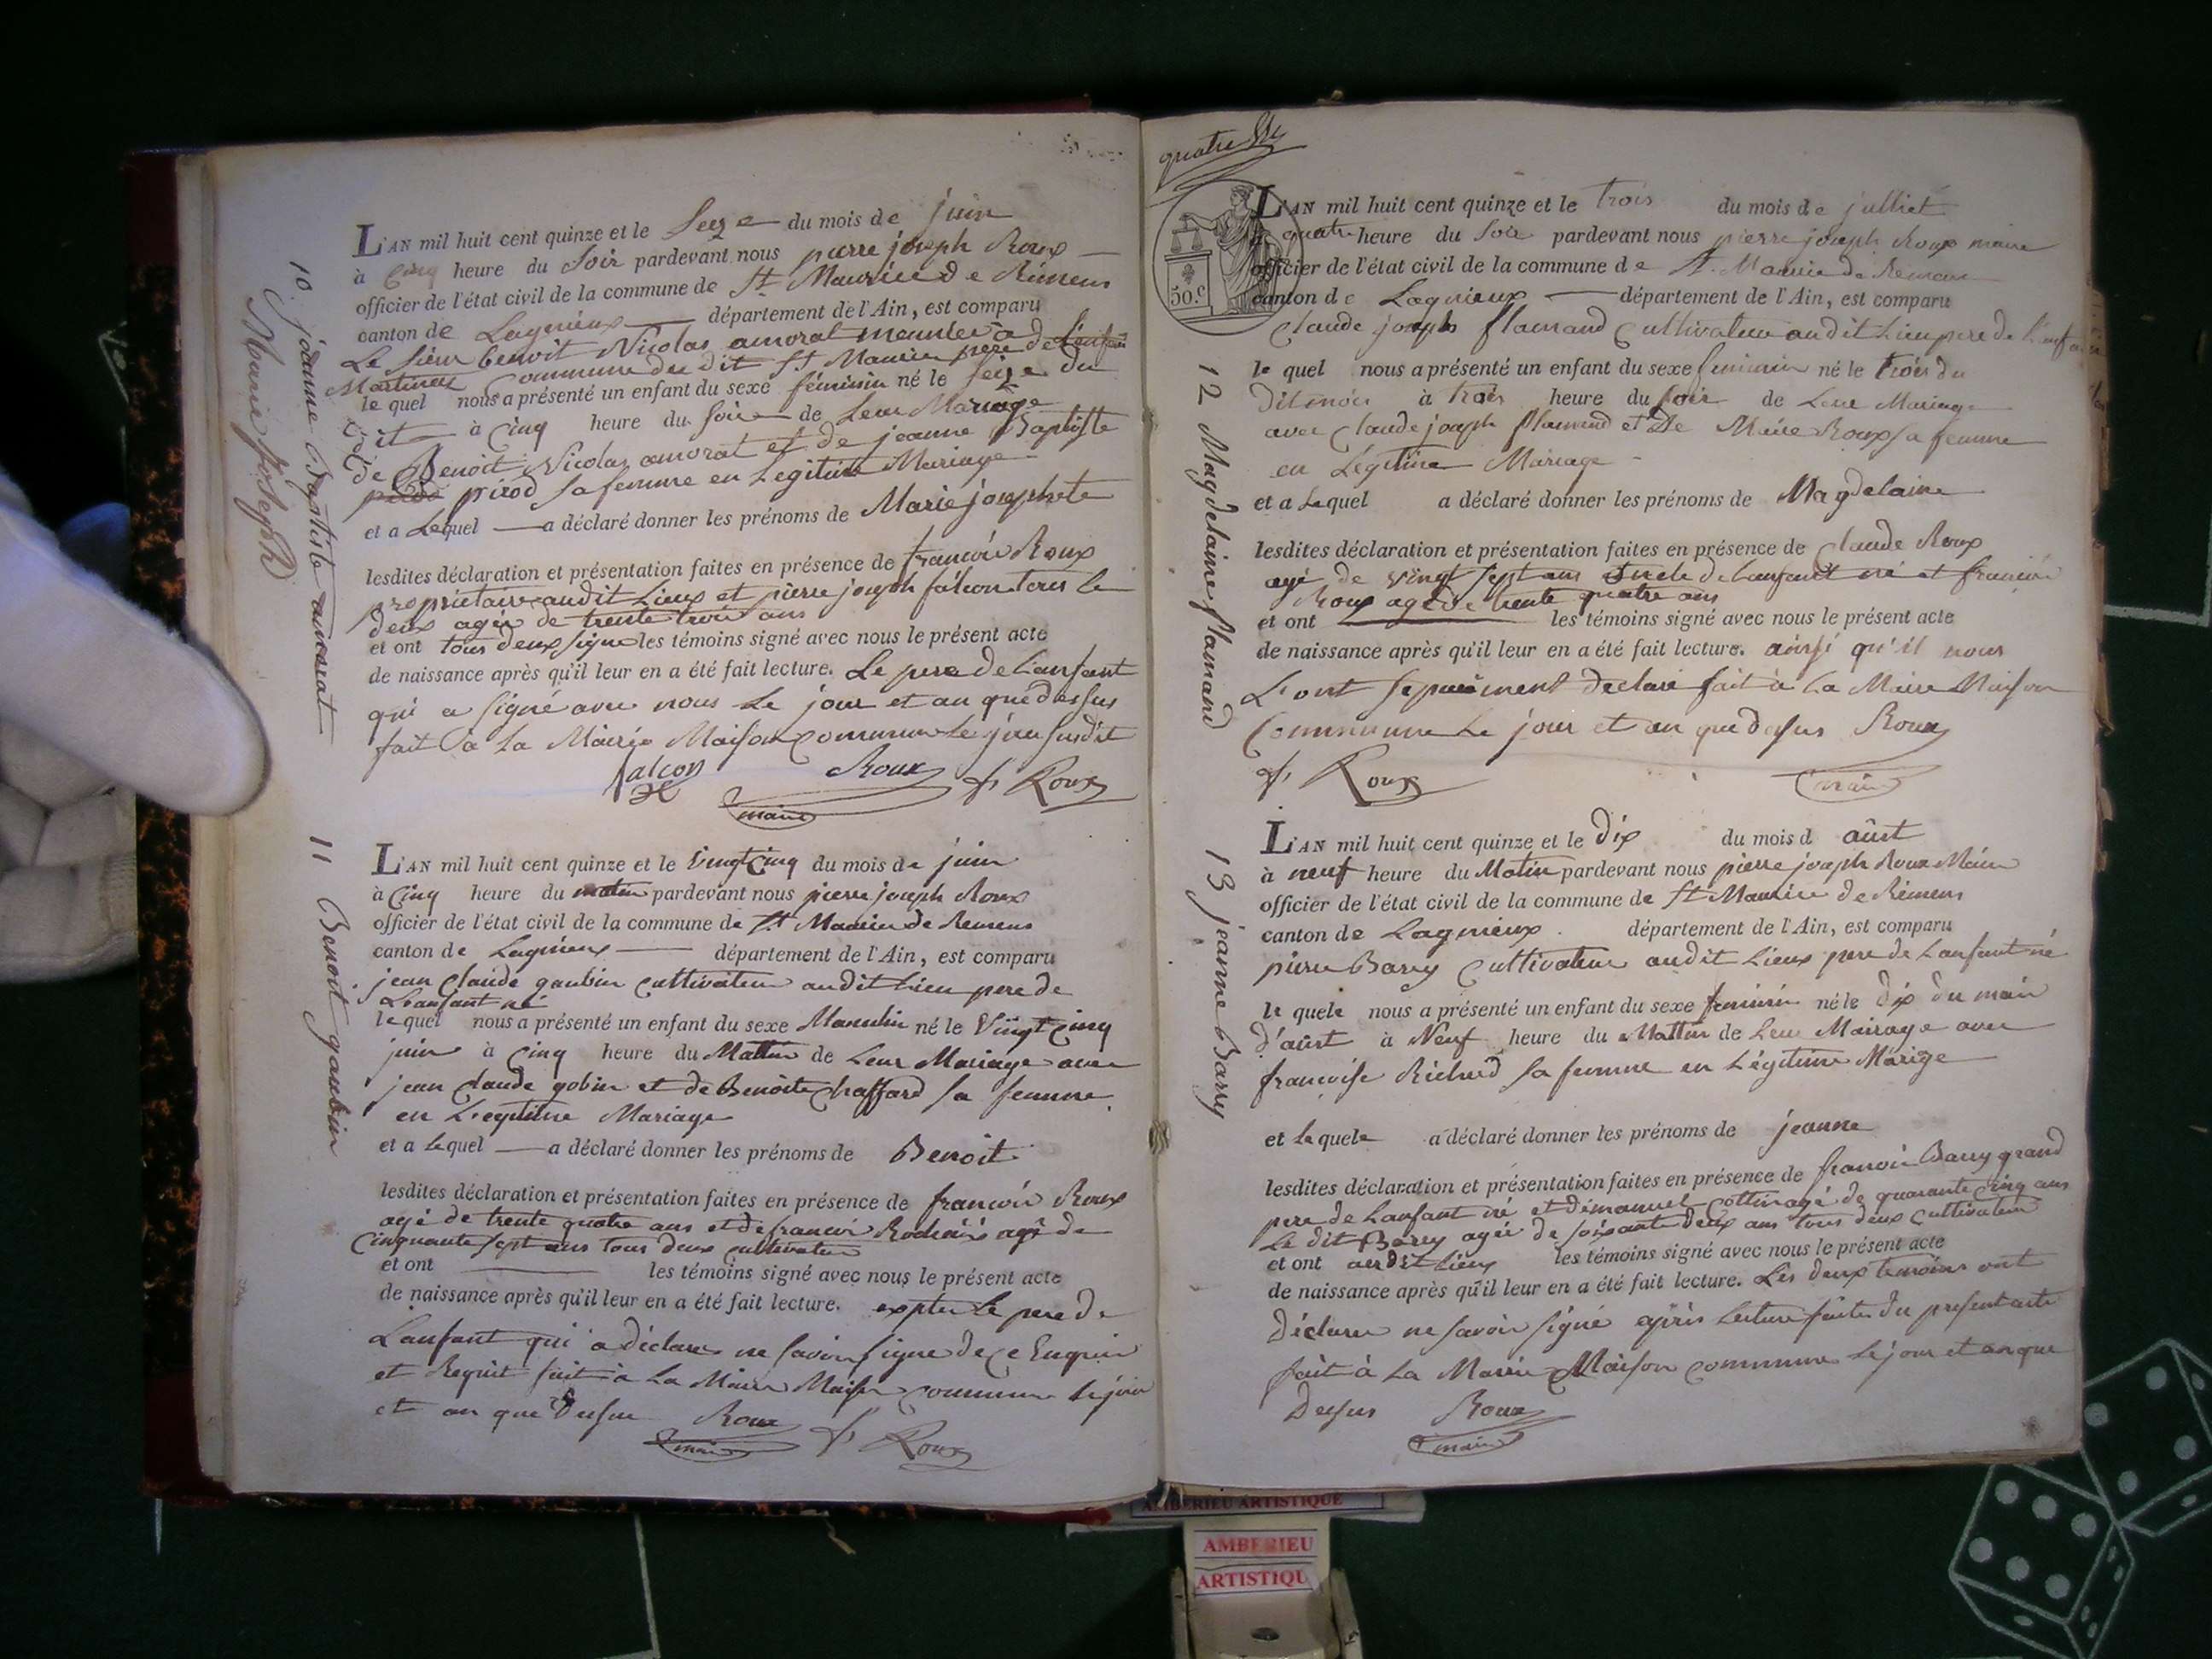 10 joanne Baptiste amorat
Marie joseph
L'AN mil huit cent quinze et le Seize du mois de juin
à Cinq heure du Soir pardevant nous pierre joseph Roux
officier de l'état civil de la commune de St. Maurice de Rémens
canton de Lagnieux département de l'Ain, est comparu
Le Sieur benoit Nicolas amorat meunier à
Martinaz Commune du dit St Maurice pere de L'enfant
le quel nous a présenté un enfant du sexe féminin né le seize du
dit à Cinq heure du Soir de Leur Mariage
de Benoit Nicolas amorat et de jeanne Baptiste
pirod sa femme en Legitime Mariage
et a Lequel a déclaré donner les prénoms de Marie josephete
lesdites déclaration et présentation faites en présence de francois Roux
proprietaire audit Lieux et pierre joseph falcon tous le
deux agés de trente trois ans
et ont tous deux signe les témoins signé avec nous le présent acte
de naissance après qu'il leur en a été fait lecture. Le pere de L'anfant
qui a signé avec nous Le jour et an que dessus
fait à La Mairie Maison commune Le jour susdit
falcon Roux fs Roux
maire
11 Benoit gaubin
L'AN mil huit cent quinze et le Vingt Cinq du mois de juin
à Cinq heure du matin pardevant nous pierre joseph Roux
officier de l'état civil de la commune de St Maurice de Remens
canton de Lagnieux département de l'Ain, est comparu
jean Claude gaubin Cultivateur audit Lieu pere de
L'anfant né
le quel nous a présenté un enfant du sexe Masculin né le Vingt Cinq
juin à Cinq heure du Mattin de Leur Mariage avec
jean Claude gobin et de Benoite Chaffard sa femme
en Legitime Mariage
et a Lequel a déclaré donner les prénoms de Benoit
lesdites déclaration et présentation faites en présence de francois Roux
agé de trente quatre ans et de francois agé de
Cinquante sept ans tous deux cultivateur
et ont les témoins signé avec nous le présent acte
de naissance après qu'il leur en a été fait lecture. expter Le pere de
L'anfant qui a déclaré ne savoir signe de ce Enquis
et Requit fait à La Mairie Maison commune Le jour
et an que dessus Roux fs Roux
maire
quatre
50.c
12 Magdelaine flamand
L'AN mil huit cent quinze et le trois du mois de julliet
à quatre heure du Soir pardevant nous pierre joseph Roux maire
officier de l'état civil de la commune de St. Maurice de Remens
canton de Lagnieux département de l'Ain, est comparu
Claude joseph flamand Cultivateur audit Lieu pere de L'enfant
le quel nous a présenté un enfant du sexe feminin né le trois du
dit mois à trois heure du soir de Leur Mariage
avec Claude joseph flamand et de Marie Roux sa femme
en Légitime Mariage
et a Lequel a déclaré donner les prénoms de Magdelaine
lesdites déclaration et présentation faites en présence de Claude Roux
agé de vingt sept ans oncle de Lanfant né et francois
Roux agé de trente quatre ans
et ont les témoins signé avec nous le présent acte
de naissance après qu'il leur en a été fait lecture. ainsi qu'il nous
L'ont séparément declaré fait à La Mairie Maison
Commune Le jour et an que desus Roux
fs Roux maire
13 jeanne Barry
L'AN mil huit cent quinze et le dix du mois d aûst
à neuf heure du Matin pardevant nous pierre joseph Roux Maire
officier de l'état civil de la commune de St Maurice de Rémens
canton de Lagnieux département de l'Ain, est comparu
pierre Barry Cultivateur audit Lieux pere de Lanfant né
le quele nous a présenté un enfant du sexe feminin né le dix du mois
d'aûst à Neuf heure du Mattin de Leur Mairage avec
francoise Richerd sa femme en Légitime Marige
et le quele a déclaré donner les prénoms de jeanne
lesdites déclaration et présentation faites en présence de francois Barry grand
pere de Lanfant né et démanuel Cottin agé de quarante Cinq ans
Le dit Barry agée de soisant deux ans tous deux Cultivateur
et ont audit Lieux les témoins signé avec nous le présent acte
de naissance après qu'il leur en a été fait lecture. Les deux temoins ont
déclarer ne savoir signé apris Lecture faite du present acte
fait à La Mairie Maison commune Le jour et an que
Desus Roux
maire
AMBERIEU ARTISTIQUE
AMBERIEU
ARTISTIQU